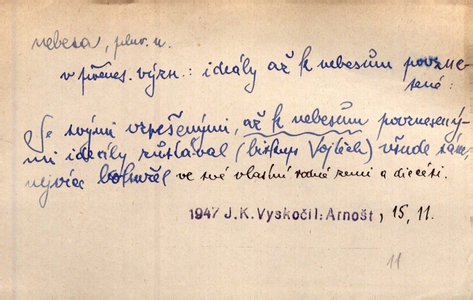 nebesa, plur. n.
v přenes. význ.: ideály až k nebesům povzne-
sené:
Se svými vznešenými, až k nebesům povznesený-
mi ideály zůstával (biskup Vojtěch) všude sám,
nejvíce bohužel ve své vlastní rodné zemi a diecési.
1947 J. K. Vyskočil: Arnošt, 15, 11.
11